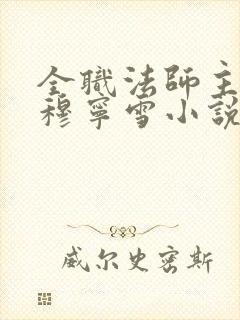 全職法師主
穆寧雪小說
威尔史密斯